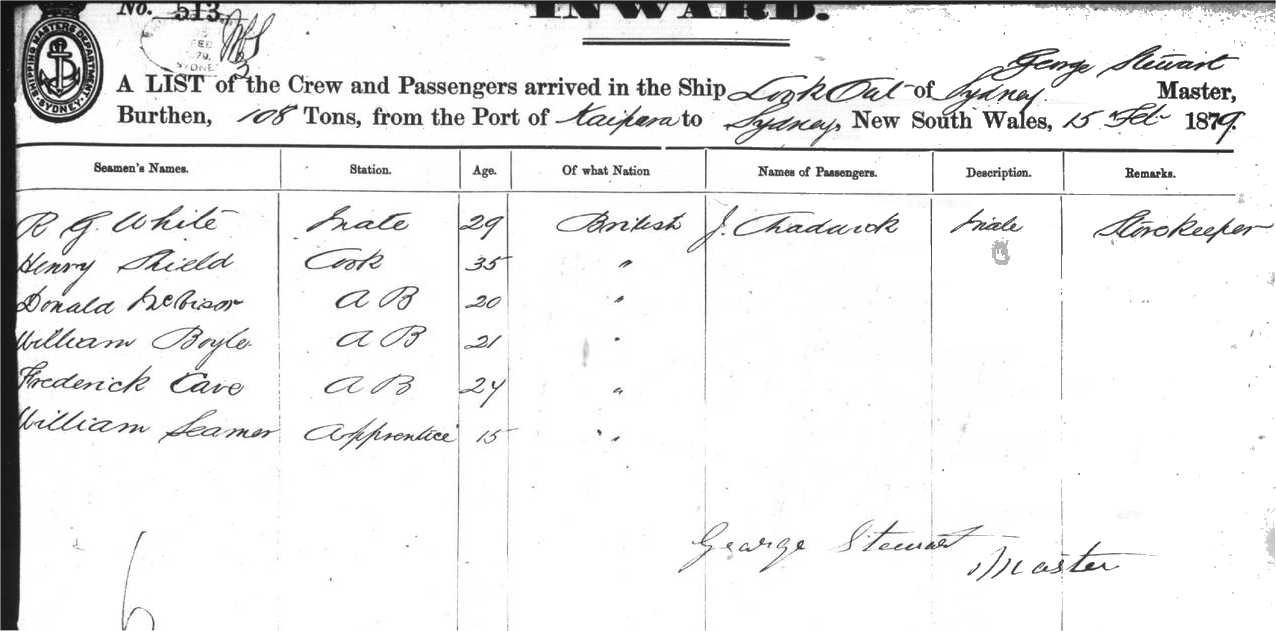 No. 513
INWARD.
SHIPPING MASTERS DEPARTMENT SYDNEY
George Stewart
A LIST of the Crew and Passengers arrived in the Ship Look Out of Sydney Master,
Burthen, 108 Tons, from the Port of Kaipara to Sydney, New South Wales, 15 Feb 1879.
Seamen's Names. Station. Age. Of what Nation Names of Passengers. Description. Remarks.
R G. White Mate 29 British J. Chadwick Male Storekeeper
Henry Shield Cook 35 "
Donald A B 20 "
William Boyle A B 21 "
Frederick Cave A B 24 "
William Seamer Apprentice 15 "
George Stewart Master
6